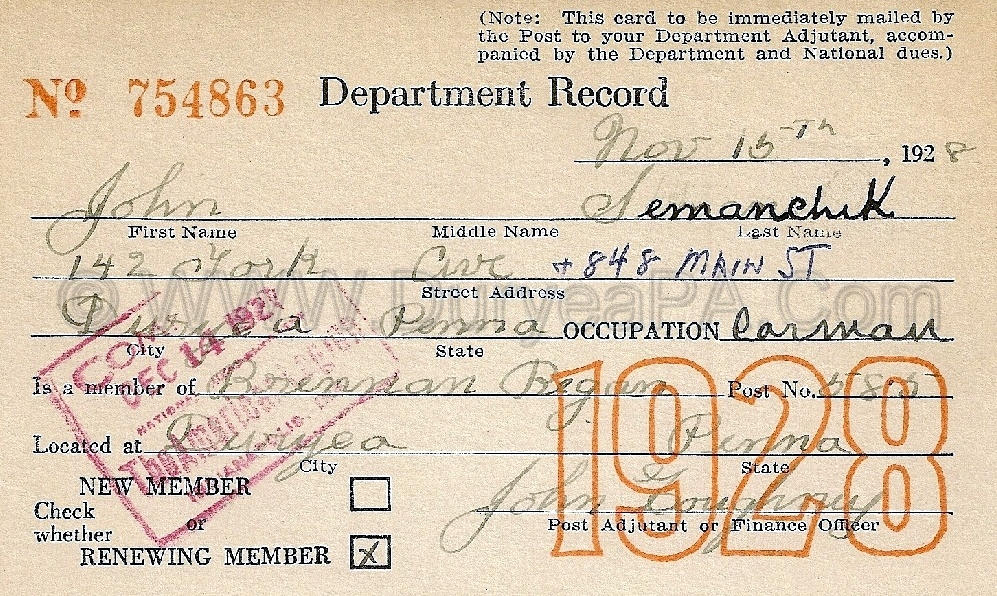 (Note: This card to be immediately mailed by
the Post to your Department Adjutant, accom-
panied by the Department and National dues.)
No. 754863 Department Record
Nov 15th, 1928
John Semanchik
First Name Middle Name Last Name
142 York Ave + 848 MAIN ST
Street Address
© WWW.DuryeaPA.Com
Duryea Penna OCCUPATION Carman
City State
DEC 14 1928
Is a member of Brennan Regan Post No. 585
The American Legion
INDIANAPOLIS
1928
Located at Duryea Penna
City State
NEW MEMBER
Check
whether or
RENEWING MEMBER X
John Loughney
Post Adjutant or Finance Officer